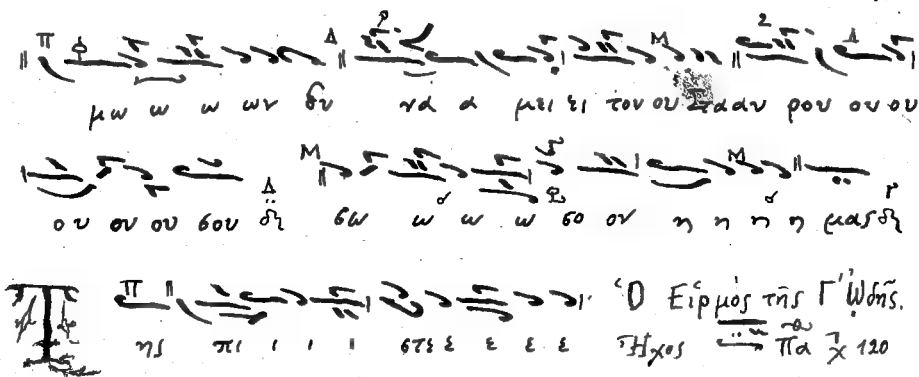 μω ω ω ων δυ νά α μει ει του ου Σταυ ρου ου ου
ου ου ου σου δη σω ω ω ω σο ον η η η η μας δη
Τ ης πι ι ι ι στε ε ε ε ε Ὁ Εἱρμός τῆς Γ΄ Ὠδῆς.
Ἦχος Πα χ 120